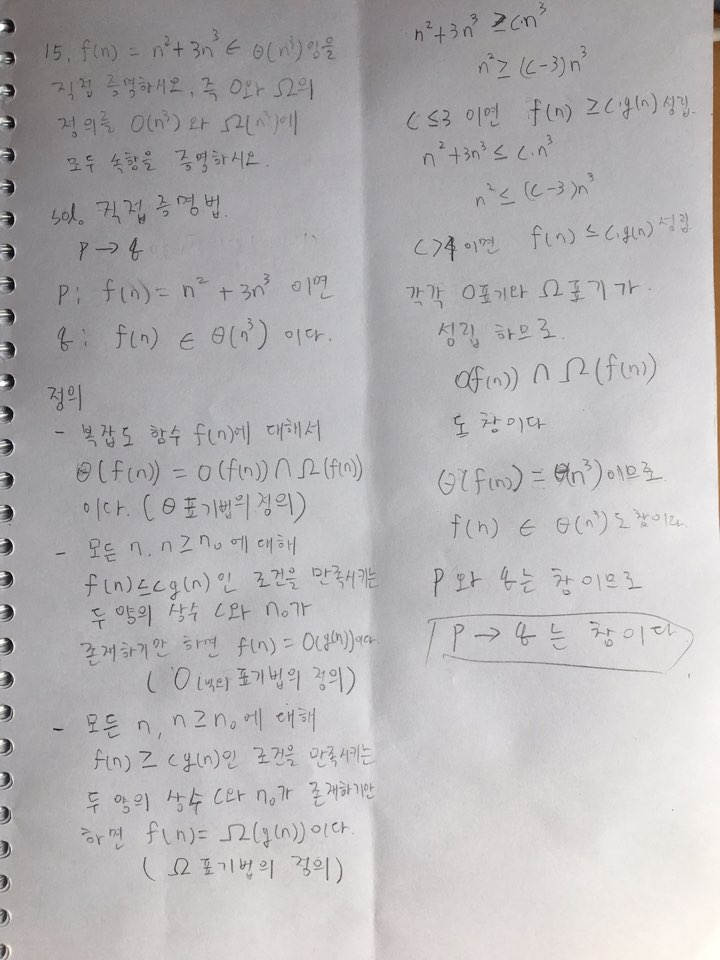 15. f(n) = n² + 3n³ ∈ Θ(n³)임을
직접 증명하시오. 즉 O와 Ω의
정의를 O(n³)와 Ω(n³)에
모두 속함을 증명하시오.
sol. 직접 증명법.
P → q
P: f(n) = n² + 3n³ 이면
q: f(n) ∈ Θ(n³) 이다.
정의
- 복잡도 함수 f(n)에 대해서
Θ(f(n)) = O(f(n)) ∩ Ω(f(n))
이다. (Θ 표기법의 정의)
- 모든 n, n ≥ n₀에 대해
f(n) ≤ cg(n)인 조건을 만족시키는
두 양의 상수 c와 n₀가
존재하기만 하면 f(n) = O(g(n))이다
(O 표기법의 정의)
- 모든 n, n ≥ n₀에 대해
f(n) ≥ cg(n)인 조건을 만족시키는
두 양의 상수 c와 n₀가 존재하기만
하면 f(n) = Ω(g(n))이다.
(Ω 표기법의 정의)
n² + 3n³ ≥ c·n³
n² ≥ (c-3)n³
c ≤ 3 이면 f(n) ≥ c·g(n) 성립.
n² + 3n³ ≤ c·n³
n² ≤ (c-3)n³
c > 4 이면 f(n) ≤ c·g(n) 성립
각각 O표기와 Ω표기가
성립 하므로.
O(f(n)) ∩ Ω(f(n))
도 참이다
Θ(f(n)) = Θ(n³)이므로.
f(n) ∈ Θ(n³)도 참이다.
P와 q는 참이므로
P → q 는 참이다